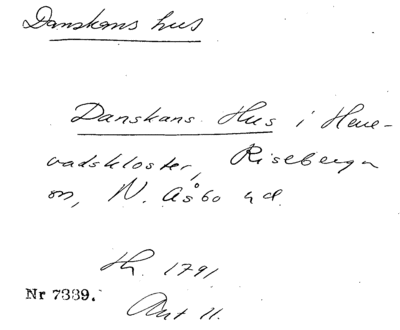 Danskans hus
Danskans Hus i Herre-
vadskloster, Riseberga
sn, N. Åsbo hd.
Hh. 1791
Nr 7339.
Avt 11.